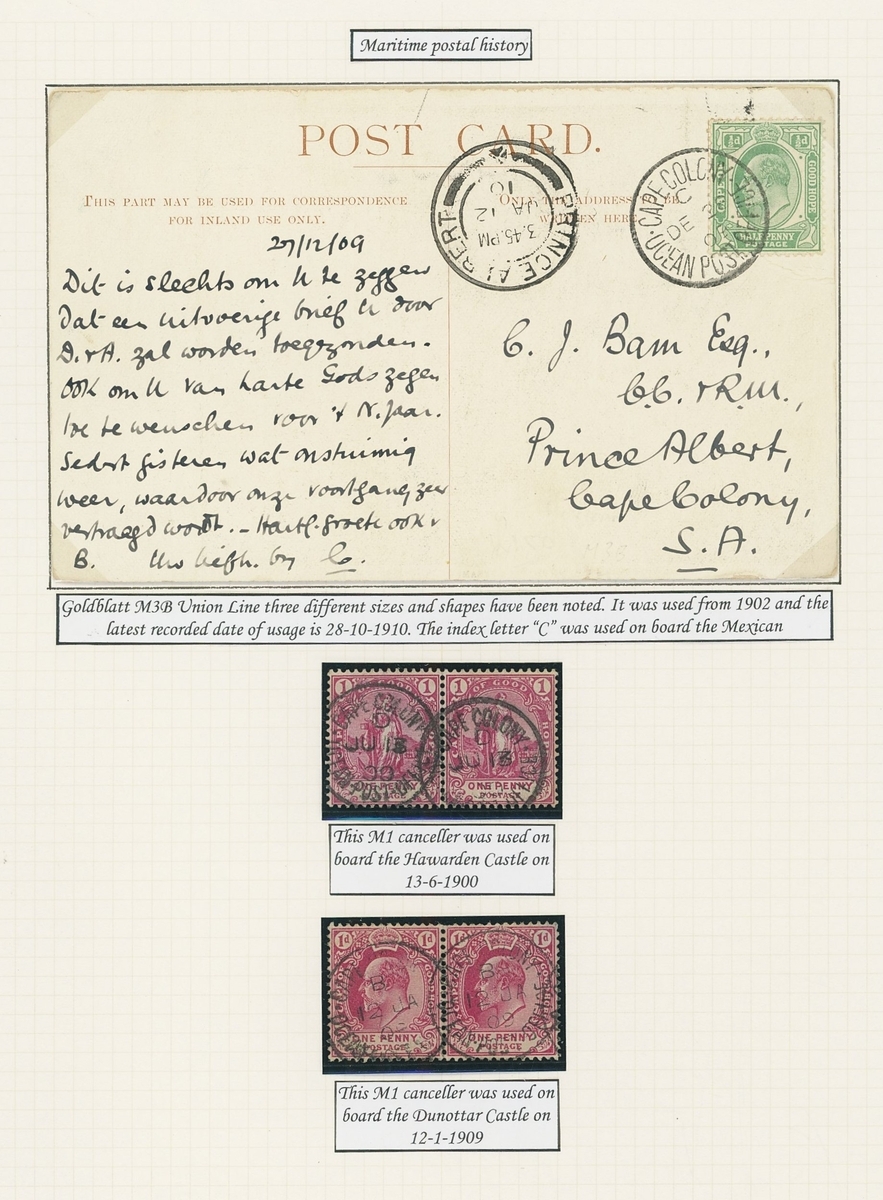 Maritime postal history
POST CARD.
THIS PART MAY BE USED FOR CORRESPONDENCE
FOR INLAND USE ONLY.
ONLY THE ADDRESS TO BE
WRITTEN HERE
27/12/09
Dit is slechts om U te zeggen
dat een uitvoerige brief U door
D.v.A. zal worden toegezonden.
Ook om U van harte Gods zegen
toe te wenschen voor 't N. Jaar.
Sedert gisteren wat onstuimig
weer, waardoor onze voortgang zeer
vertraagd wordt. – Hartl. groete ook v
B. Uw liefh. C.
PRINCE ALBERT
3.45.PM
JA 12
10
CAPE COLONY
C
DE
OCEAN POST
½d ½d
GOOD HOPE
HALF PENNY
POSTAGE
C. J. Bam Esq.,
C.C. & R.M.,
Prince Albert,
Cape Colony,
S.A.
Goldblatt M3B Union Line three different sizes and shapes have been noted. It was used from 1902 and the
latest recorded date of usage is 28-10-1910. The index letter “C” was used on board the Mexican
1 1 1 OF GOOD 1
CAPE COLONY
D
JU 13
00
CAPE COLONY
D
JU 13
ONE PENNY
POSTAGE
ONE PENNY
POSTAGE
This M1 canceller was used on
board the Hawarden Castle on
13-6-1900
1d 1d 1d 1d
B
12 JA
09
B
12 JA
09
ONE PENNY
POSTAGE
ONE PENNY
POSTAGE
This M1 canceller was used on
board the Dunottar Castle on
12-1-1909